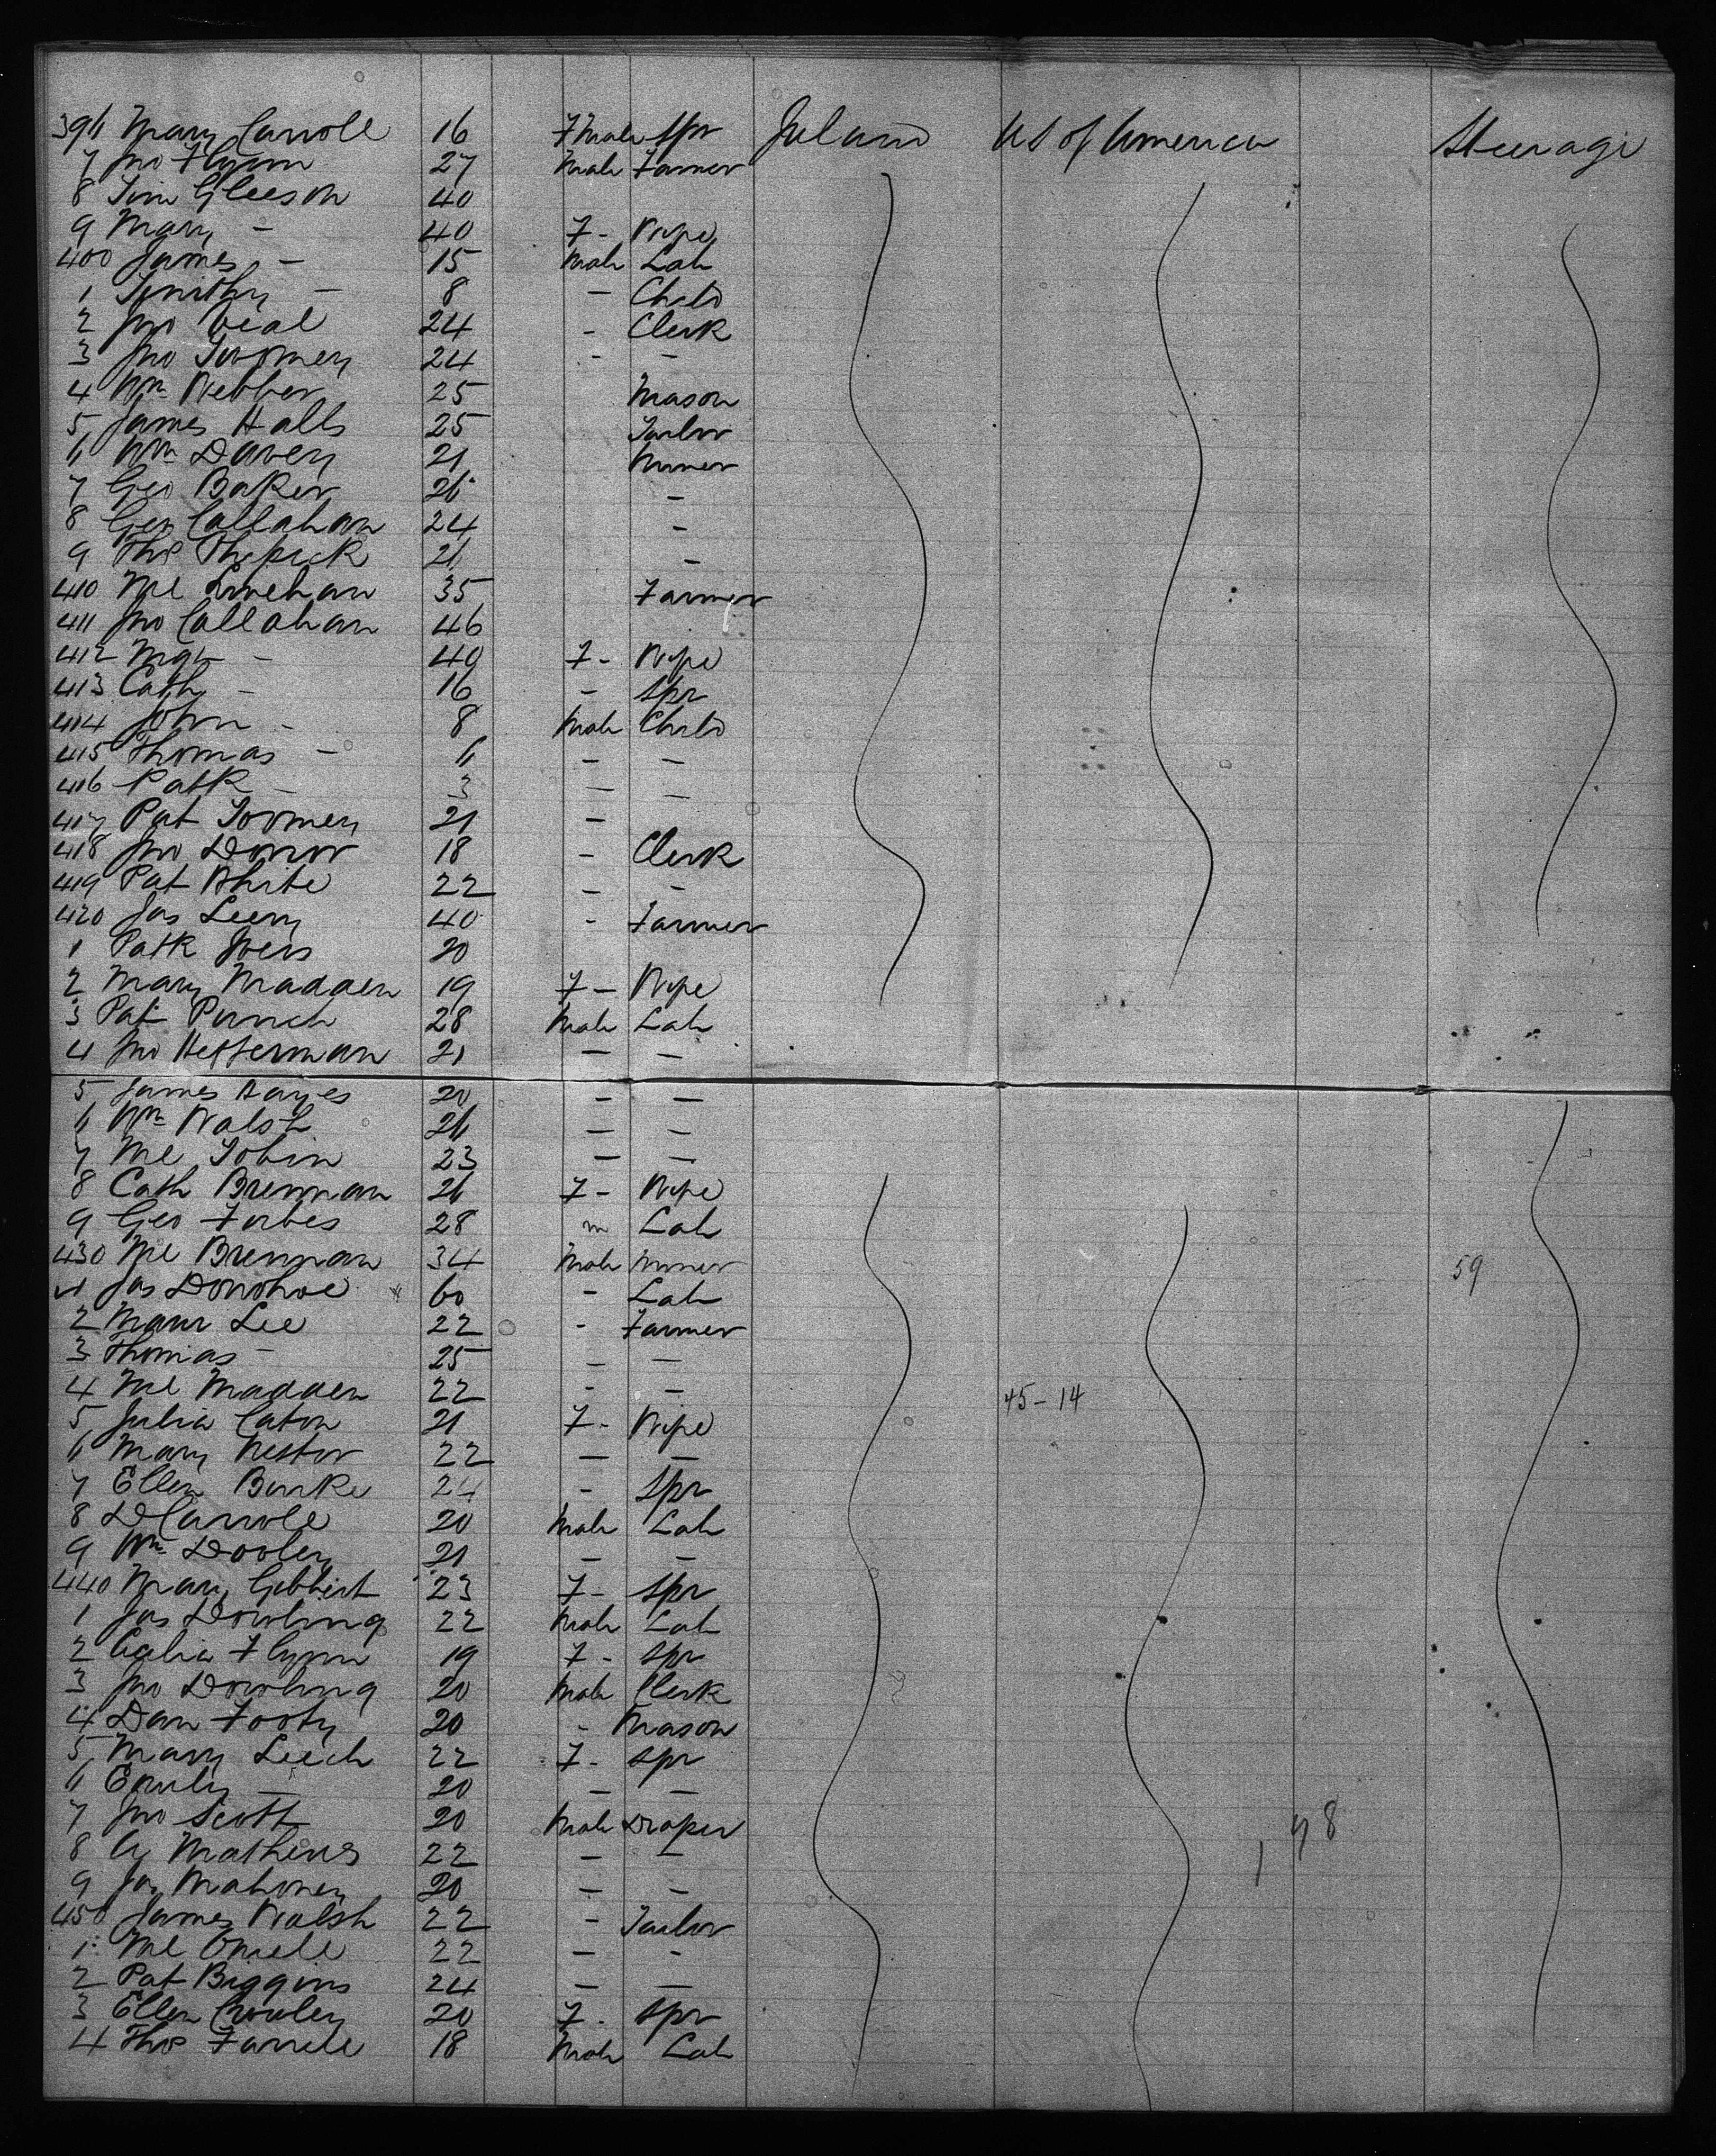 396 Mary Carroll 16 Fmale Spr Ireland US of America Steerage
7 Jno Flynn 27 Male Farmer
8 Tim Gleeson 40
9 Mary - 40 F- Wife
400 James - 15 Male Lab
1 Timithy - 8 - Child
2 Jno Veal 24 - Clerk
3 Jno Twomey 24 - -
4 Wm Webber 25 Mason
5 James Halls 25 Tailor
6 Wm Davey 21 Miner
7 Geo Baker 26 -
8 Geo Callahan 24 -
9 Thos 26 -
410 Ml Linehan 35 Farmer
411 Jno Callahan 46
412 Mgt - 40 F- Wife
413 Cath - 16 - Spr
414 John - 8 Male Child
415 Thomas - 6 - -
416 Patk - 3 - -
417 Pat Toomey 21 -
418 Jno 18 - Clerk
419 Pat White 22 - -
420 Jas Leery 40 - Farmer
1 Patk 20
2 Mary Madden 19 F- Wife
3 Pat Punch 28 Male Lab
4 Jno Hefferman 21 - -
5 James Hayes 20 - -
6 Wm Walsh 26 - -
7 Ml Tobin 23 - -
8 Cath Brennan 26 F- Wife
9 Geo Forbes 28 m Lab
430 Ml Brennan 34 Male Miner 59
1 Jas Donohoe 60 - Lab
2 Maur Lee 22 - Farmer
3 Thomas - 25 - -
4 Ml Madden 22 - - 45-14
5 Julia Eaton 21 F- Wife
6 Mary Nestor 22 - -
7 Ellen Burke 24 - Spr
8 D Carroll 20 Male Lab
9 Wm Dooley 21 - -
440 Mary 23 F- Spr
1 Jas Dowling 22 Male Lab
2 Celia Flynn 19 F- Spr
3 Jno Dowling 20 Male Clerk
4 Dan Footy 20 - Mason
5 Mary Leech 22 F- Spr
6 Emily - 20 - -
7 Jno Scott 20 Male Draper 1 78
8 Mathews 22 - -
9 Jas Mahoney 20 - -
450 James Walsh 22 - Tailor
1 Ml Oniell 22 - -
2 Pat Biggins 24 - -
3 Ellen Crowley 20 F- Spr
4 Thos Farrell 18 Male Lab